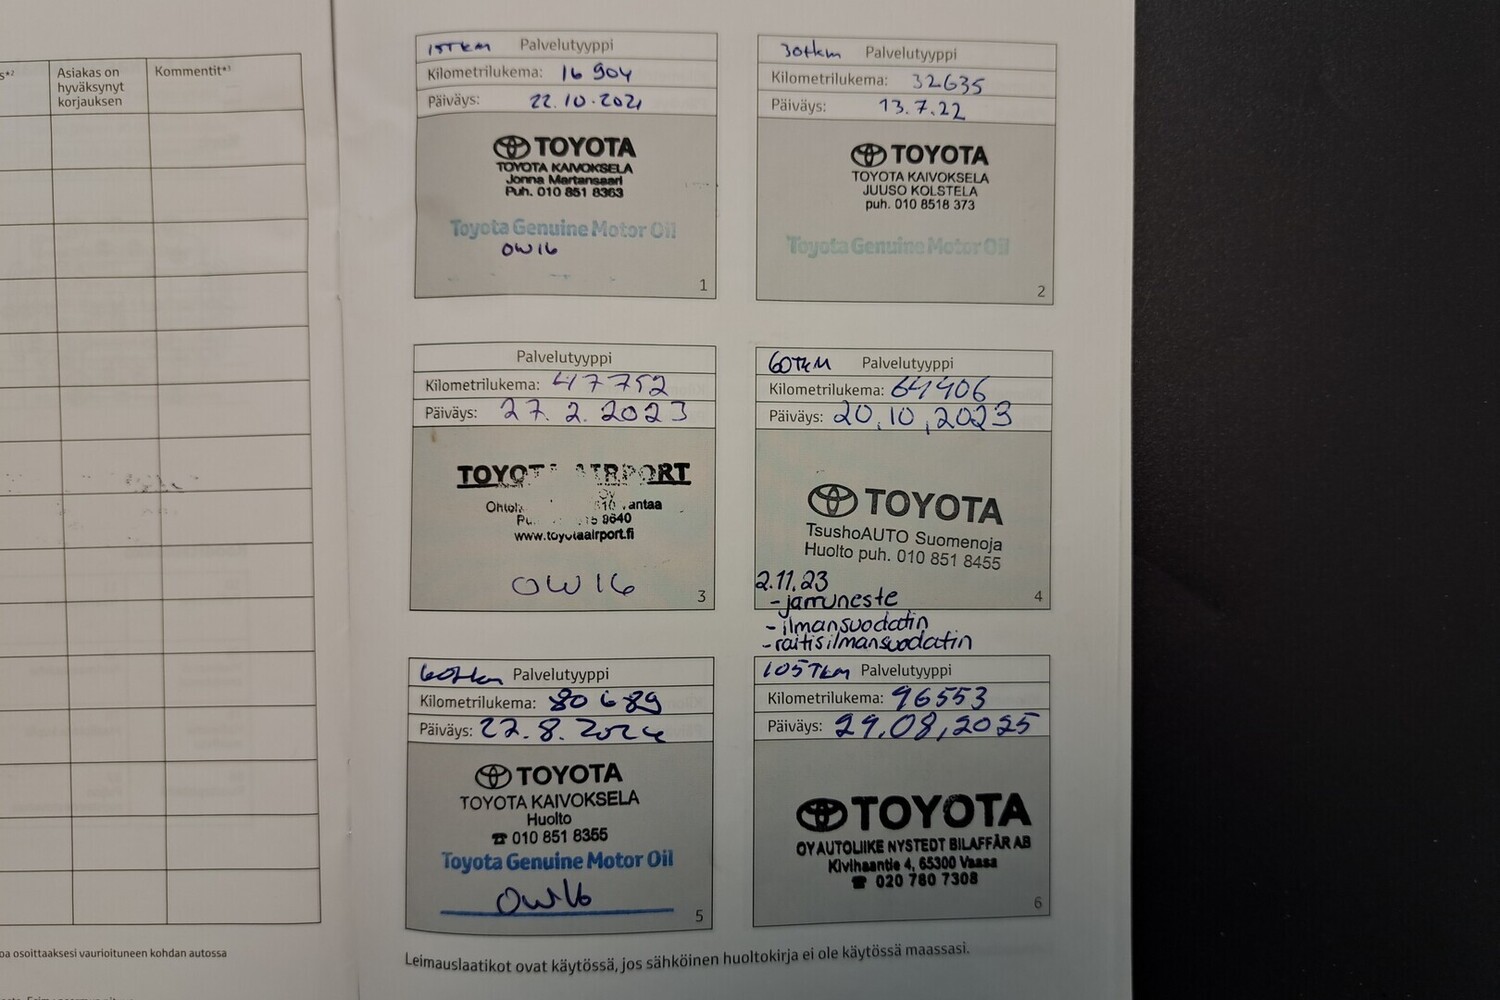 Asiakas on
hyväksynyt
korjauksen
Kommentit*³
oa osoittaaksesi vaurioituneen kohdan autossa
15TKM Palvelutyyppi
Kilometrilukema: 16 904
Päiväys: 22.10.2021
TOYOTA
TOYOTA KAIVOKSELA
Jonna Martansaari
Puh. 010 851 8363
Toyota Genuine Motor Oil
0W16
1
30tkm Palvelutyyppi
Kilometrilukema: 32635
Päiväys: 13.7.22
TOYOTA
TOYOTA KAIVOKSELA
JUUSO KOLSTELA
puh. 010 8518 373
Toyota Genuine Motor Oil
2
Palvelutyyppi
Kilometrilukema: 47752
Päiväys: 27.2.2023
TOYOTA AIRPORT
www.toyotaairport.fi
0W16
3
60TKM Palvelutyyppi
Kilometrilukema: 64406
Päiväys: 20,10,2023
TOYOTA
TsushoAUTO Suomenoja
Huolto puh. 010 851 8455
4
2.11.23
- jarruneste
- ilmansuodatin
- raitisilmansuodatin
60tkm Palvelutyyppi
Kilometrilukema: 80689
Päiväys: 22.8.2024
TOYOTA
TOYOTA KAIVOKSELA
Huolto
☎ 010 851 8355
Toyota Genuine Motor Oil
0W16
5
105TKM Palvelutyyppi
Kilometrilukema: 96553
Päiväys: 29,08,2025
TOYOTA
OY AUTOLIIKE NYSTEDT BILAFFÄR AB
Kivihaantie 4, 65300 Vaasa
☎ 020 780 7308
6
Leimauslaatikot ovat käytössä, jos sähköinen huoltokirja ei ole käytössä maassasi.